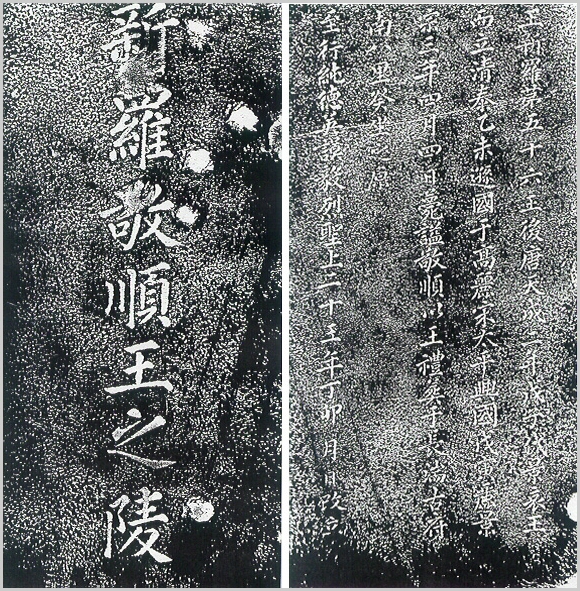 新羅敬順王之陵
王新羅第五十六王後唐天成二年戊子代景哀王
而立清泰乙未遜國于高麗宋太平興國戊寅麗景
宗三年四月四日薨謚敬順以王禮葬于長湍古府
南八里癸坐之原
至行純德英謨毅烈聖上二十三年丁卯 月 日改立